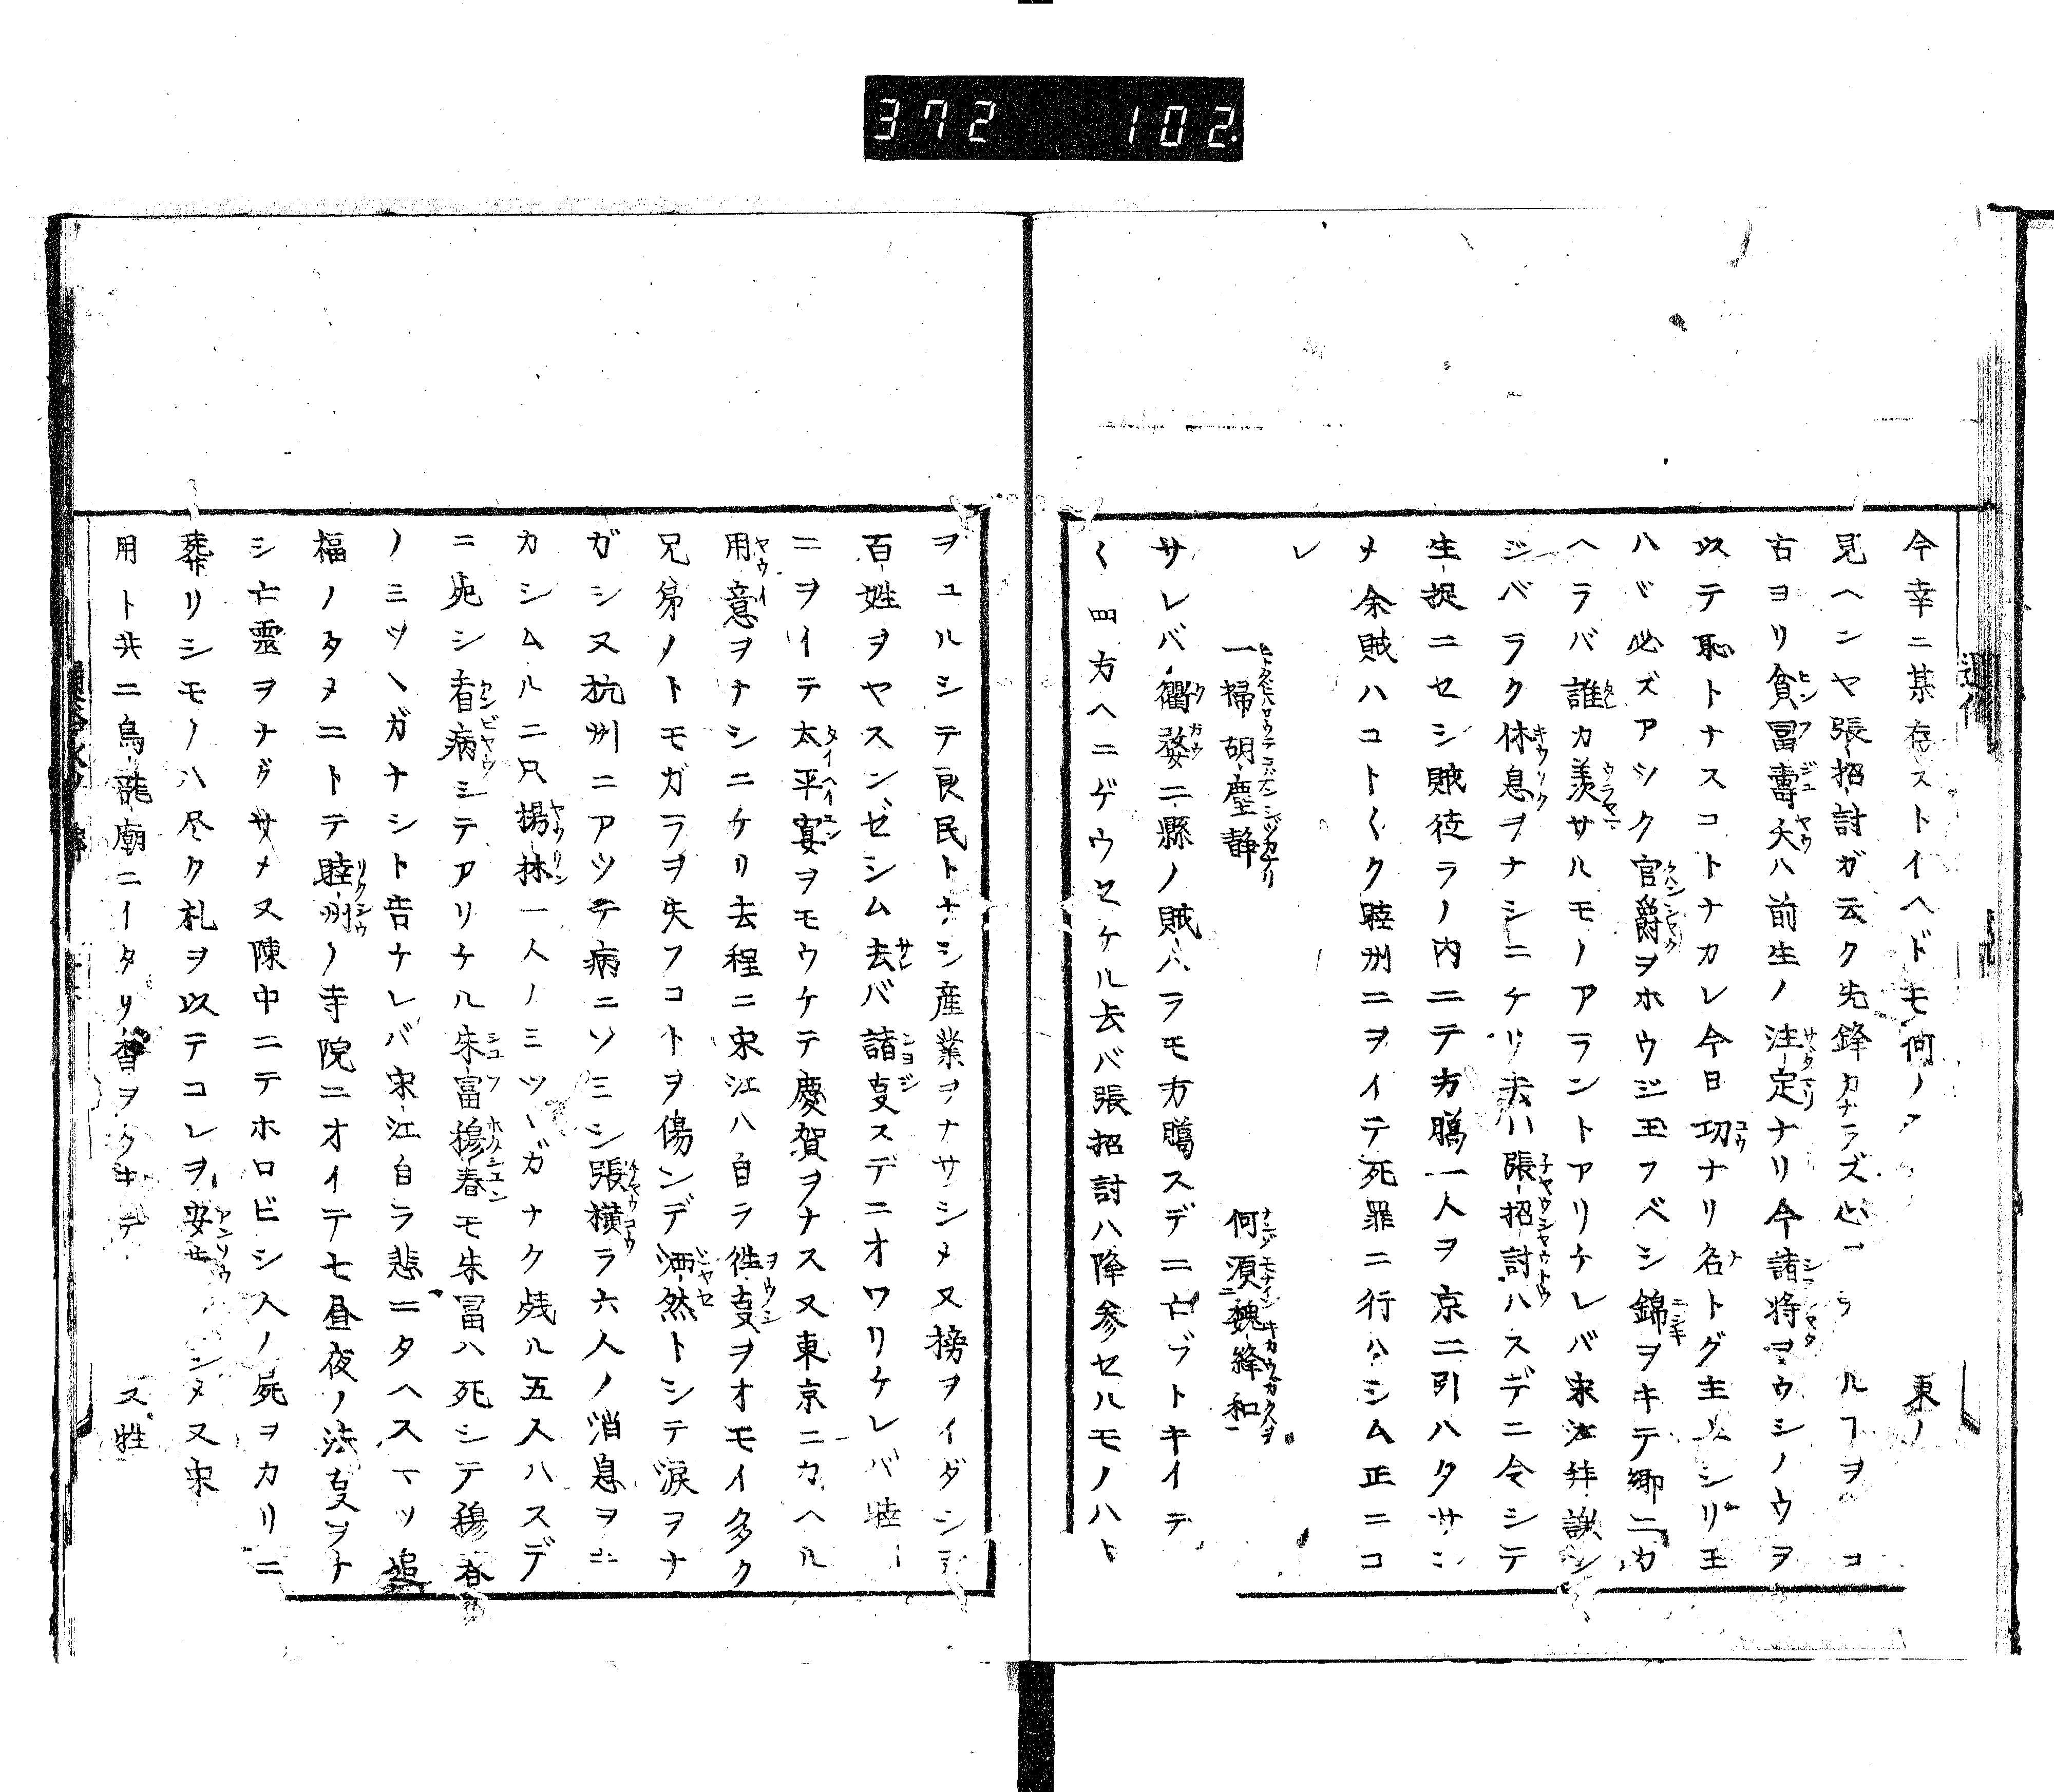 372 102
今幸ニ某存ストイヘドモ何ノ 東ノ
見ヘンヤ張招討ガ云ク先鋒カナラズ心 ルフヲ コ
古ヨリ貧冨壽夭ハ前生ノ注定ナリ今諸将ヲウシノウヲ
以テ恥トナスコトナカレ今日功ナリ名トグ主上シリ玉
ハバ必ズアツク官爵ヲホウジ玉フベシ錦ヲキテ郷ニカ
ヘラバ誰カ羨サルモノアラントアリケレバ宋江拝謝シ
ジバラク休息ヲナシニケリ去ハ張招討ハスデニ令シテ
生捉ニセシ賊徒ラノ内ニテ方臈一人ヲ京ニ引ハタサン
メ余賊ハコト〱ク睦州ニヲイテ死罪ニ行ハシム正ニコ
レ
一掃胡塵静 何須魏絳和
サレバ衢婺二縣ノ賊バラモ方臈スデニ亡ブトキイテ
〱四方ヘニゲウセケル去バ張招討ハ降参セルモノハト
ヲユルシテ良民トナシ産業ヲナサシメ又榜ヲイダシテ
百姓ヲヤスンゼシム去バ諸叓スデニオワリケレバ睦
ニヲイテ太平宴ヲモウケテ慶賀ヲナス又東京ニカヘル
用意ヲナシニケリ去程ニ宋江ハ自ラ徃叓ヲオモイ多ク
兄弟ノトモガラヲ失フコトヲ傷ンデ洒然トシテ涙ヲナ
ガシ又杭州ニアツテ病ニソミシ張横ラ六人ノ消息ヲキ
カシムルニ只楊林一人ノミツヽガナク残ル五人ハスデ
ニ死シ看病シテアリケル朱富穆春モ朱冨ハ死シテ穆春
ノミツヽガナシト告ケレバ宋江自ラ悲ニタヘスマツ追
福ノタメニトテ睦州ノ寺院ニオイテ七昼夜ノ法叓ヲナ
シ亡霊ヲナグサメ又陳中ニテホロビシ人ノ屍ヲカリニ
葬リシモノハ尽ク札ヲ以テコレヲ安 シメ又宋
用ト共ニ烏龍廟ニイタリ香ヲタキテ 又牲